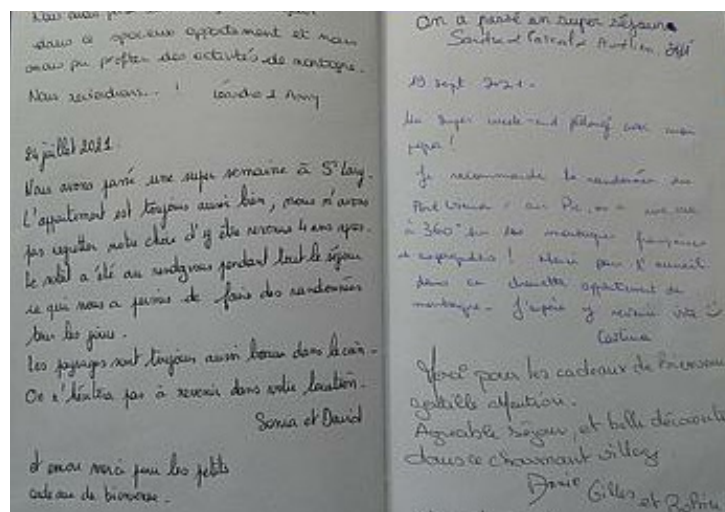 dans ce spacieux appartement et nous
avons pu profiter des activités de montagne.
Nous reviendrons... !
24 juillet 2021.
Nous avons passé une super semaine à St Lary.
L'appartement est toujours aussi bien, nous n'avons
pas regretter notre choix d'y être revenus 4 ans après.
Le soleil a été au rendez-vous pendant tout le séjour
ce qui nous a permis de faire des randonnées
tous les jours.
Les paysages sont toujours aussi beaux dans le coin.
On n'hésitera pas à revenir dans votre location.
Sonia et David
et encore merci pour les petits
cadeaux de bienvenue.
On a passé un super séjour
Sandra Pascal & Aurélien
19 sept 2021.
Un super week-end prolongé avec mon
papa !
Je recommande la randonnée du
au Pic, on a une vue
à 360° sur les montagnes françaises
et espagnoles ! Merci pour l'accueil
dans ce chouette appartement de
montagne. J'espère y revenir vite
Merci pour les cadeaux de bienvenue
gentille attention.
Agréable séjour, et belle découverte
dans ce charmant village
Gilles et